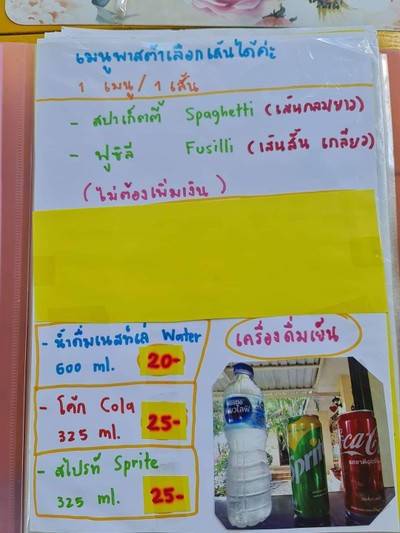 เมนูพาสต้าเลือกเส้นได้ค่ะ
1 เมนู / 1 เส้น
- สปาเก็ตตี้ Spaghetti (เส้นกลมยาว)
- ฟูซิลี Fusilli (เส้นสั้น เกลียว)
(ไม่ต้องเพิ่มเงิน)
- น้ำดื่มเนสท์เล่ Water
600 ml. 20-
- โค้ก Cola
325 ml. 25-
- สไปรท์ Sprite
325 ml. 25-
เครื่องดื่มเย็น
Sprite
Coca-C